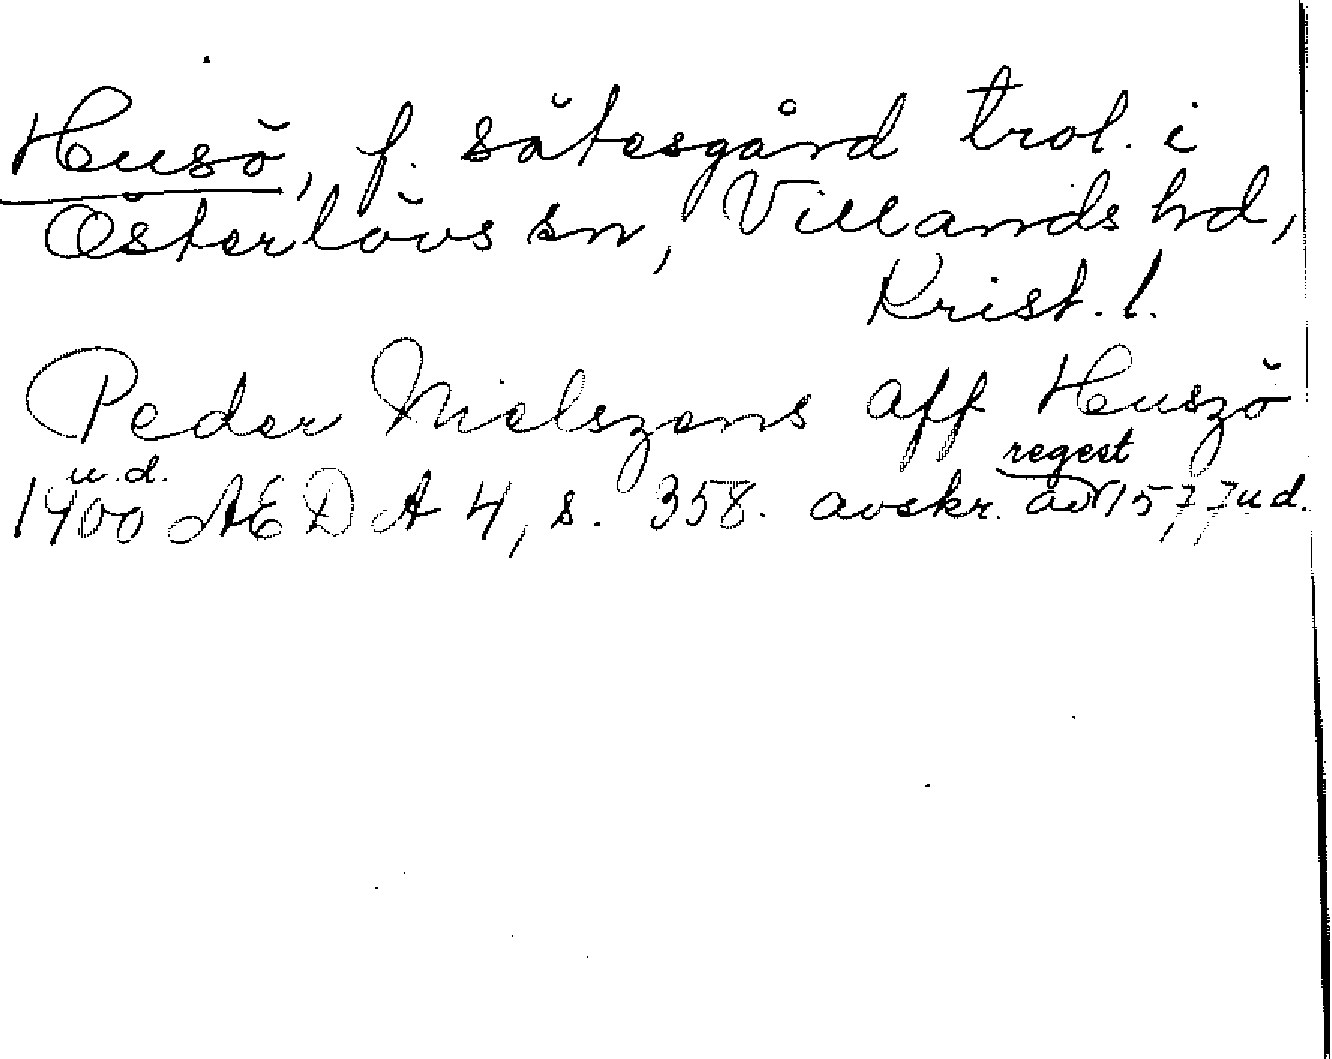 Husö, f. sätesgård trol. i
Österlövs sn, Villands hd,
Krist. l.
Peder Nielszens aff Huszö
regest
u.d.
1400 AEDA 4, s. 358. avskr. av 1577 u d.